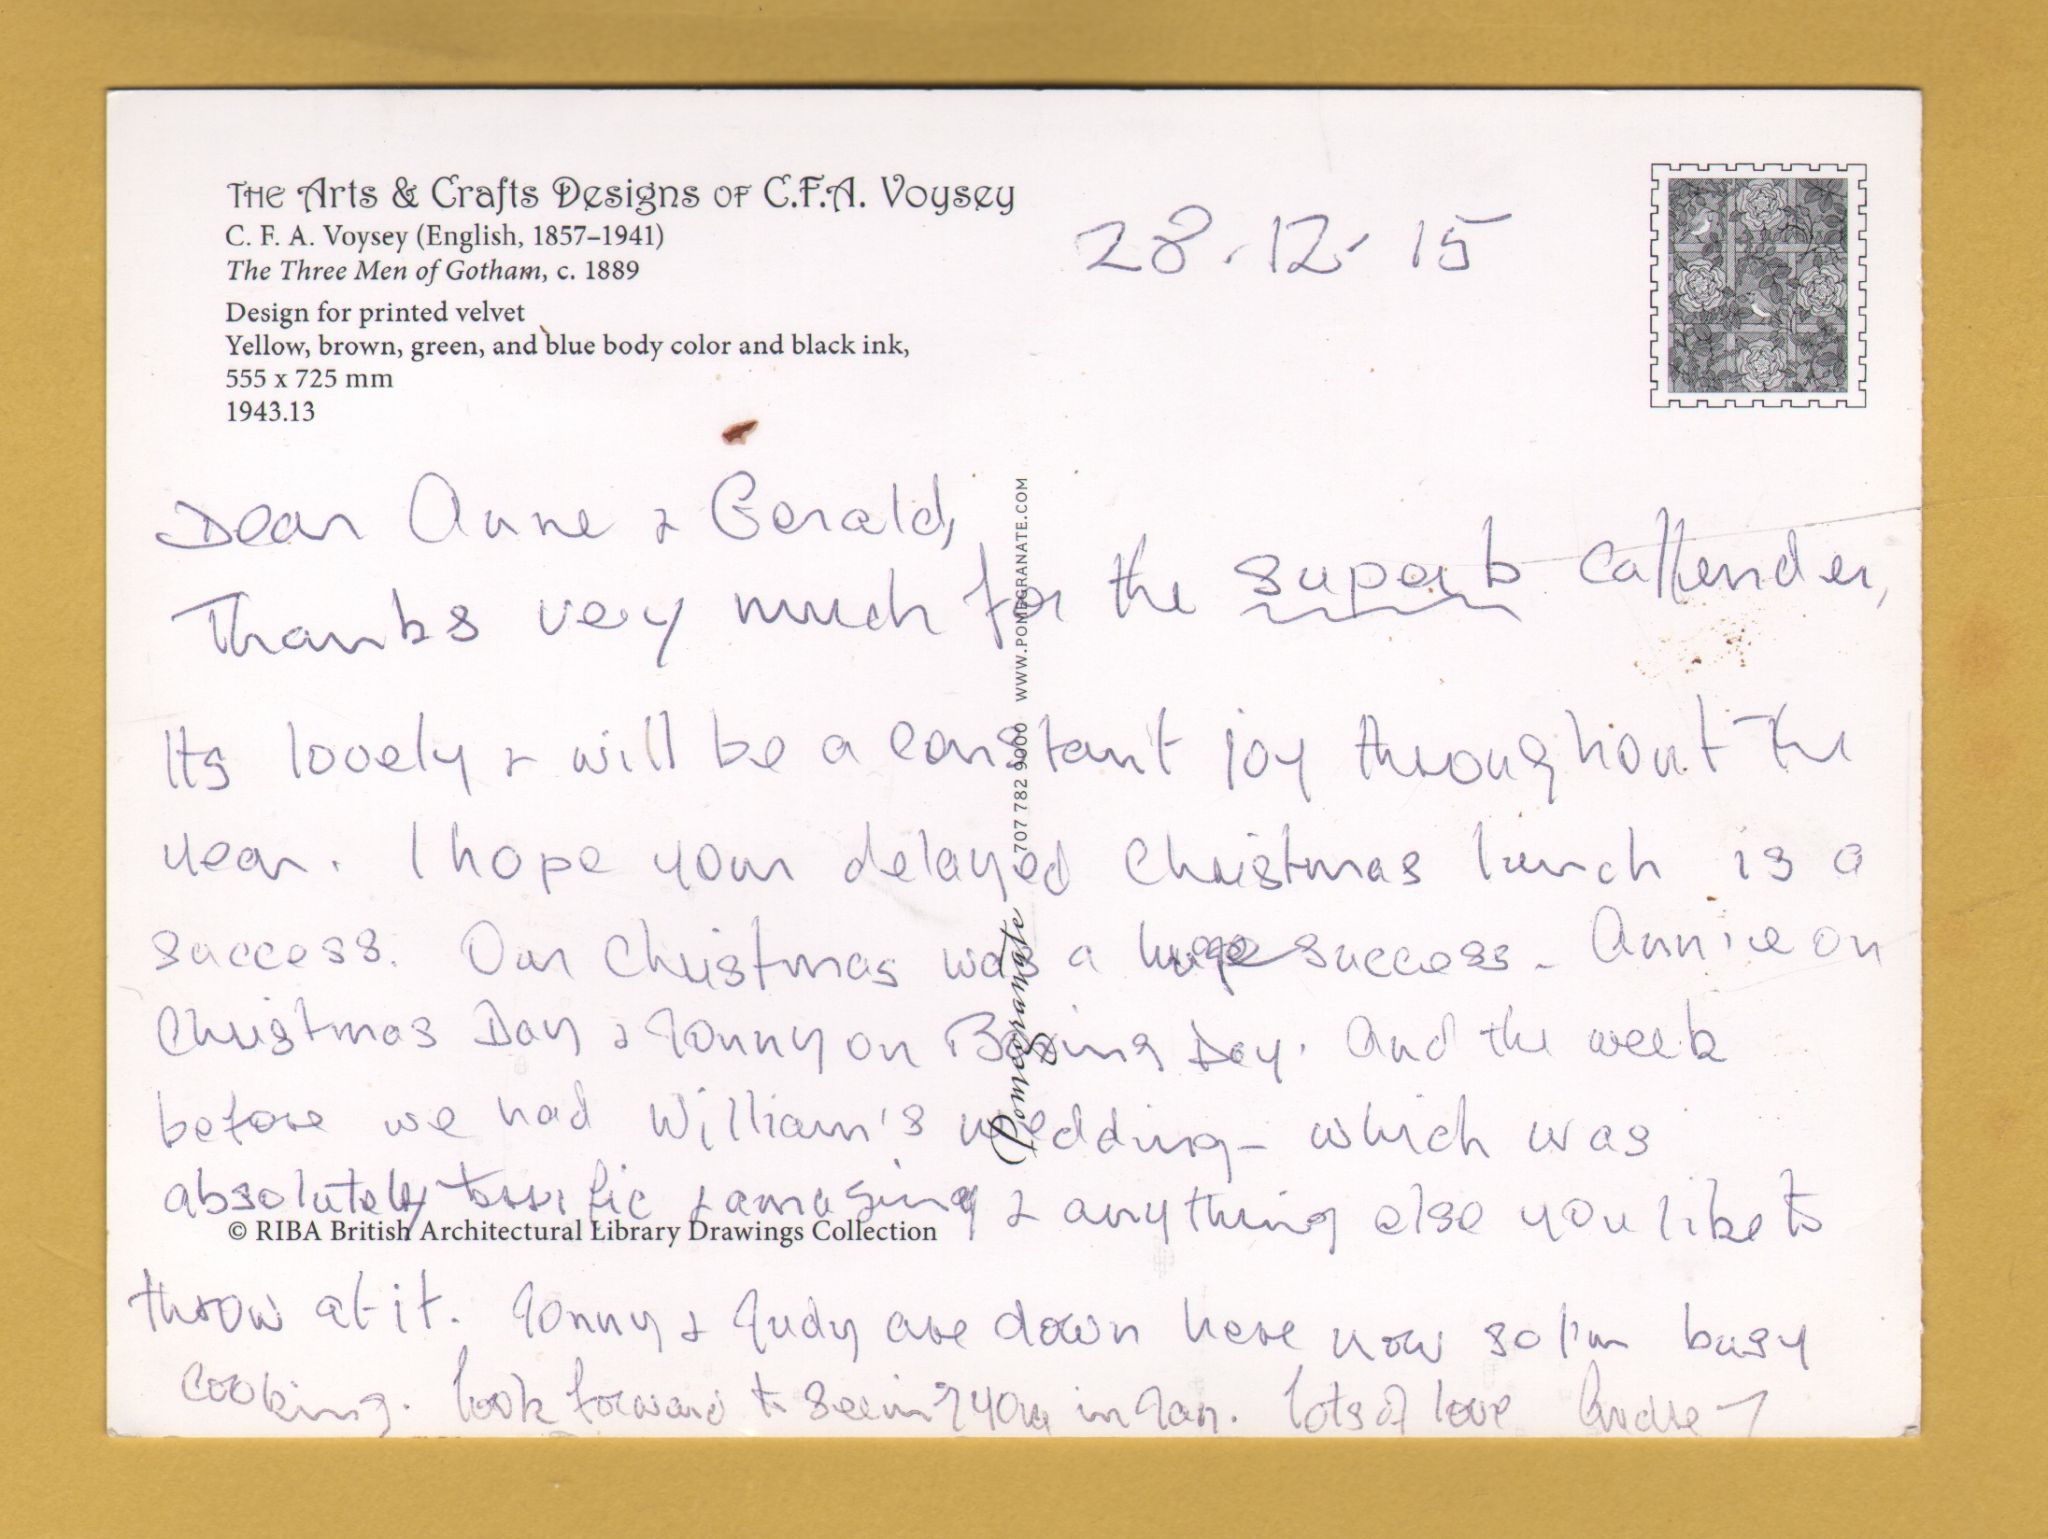 THE Arts & Crafts Designs OF C.F.A. Voysey
C. F. A. Voysey (English, 1857–1941)
The Three Men of Gotham, c. 1889
Design for printed velvet
Yellow, brown, green, and blue body color and black ink,
555 x 725 mm
1943.13
28.12.15
Dear Anne & Gerald,
Thanks very much for the superb callender,
Its lovely & will be a constant joy throughout the
year. I hope your delayed Christmas lunch is a
success. Our Christmas was a huge success - Annie on
Christmas Day & Jonny on Boxing Day. And the week
before we had William's wedding - which was
absolutely terrific & amazing & anything else you like to
throw at it. Jonny & Judy are down here now so I'm busy
cooking. look forward to seeing you in Jan. lots of love
© RIBA British Architectural Library Drawings Collection
Pomegranate 707 782 9000 WWW.POMEGRANATE.COM